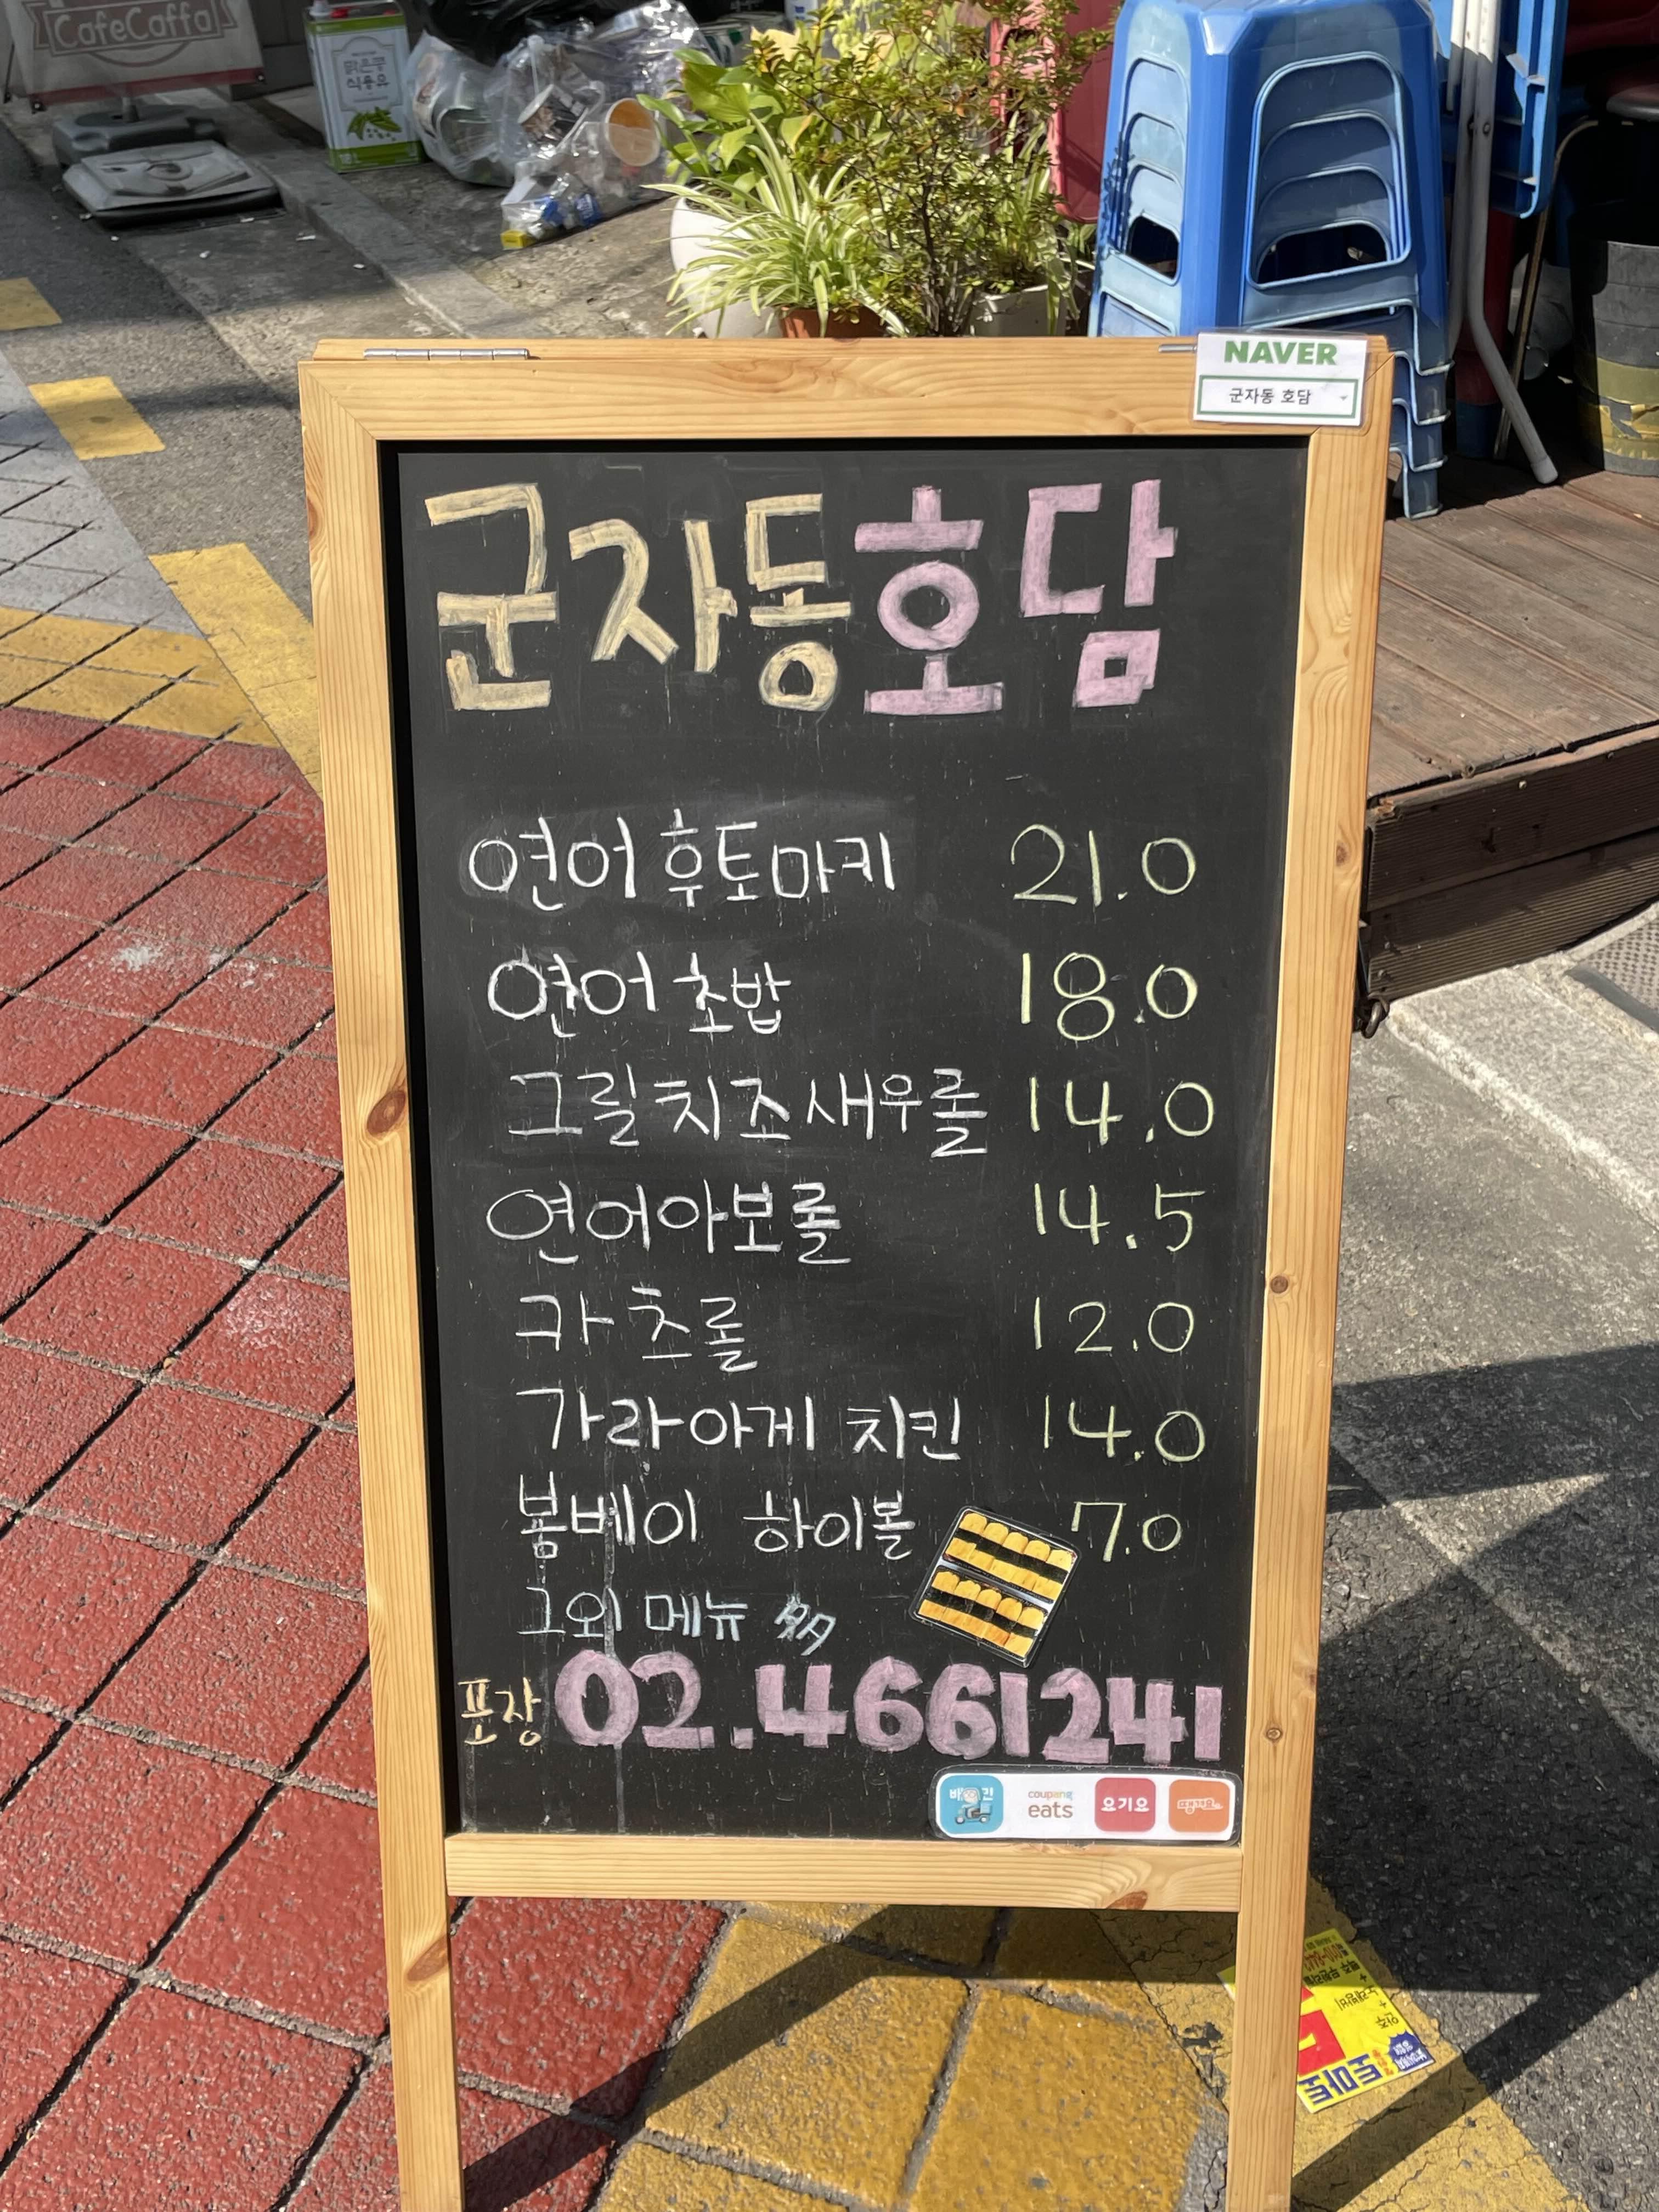 CafeCaffa
맑은콩
식용유
NAVER
군자동 호담
군자동호담
연어 후토마키 21.0
연어 초밥 18.0
그릴치즈새우롤 14.0
연어아보롤 14.5
크라 초롤 12.0
가라아게 치킨 14.0
봄베이 하이볼 7.0
그외 메뉴 多
포장 02.4661241
배민 coupang eats 요기요 땡겨요
토마토